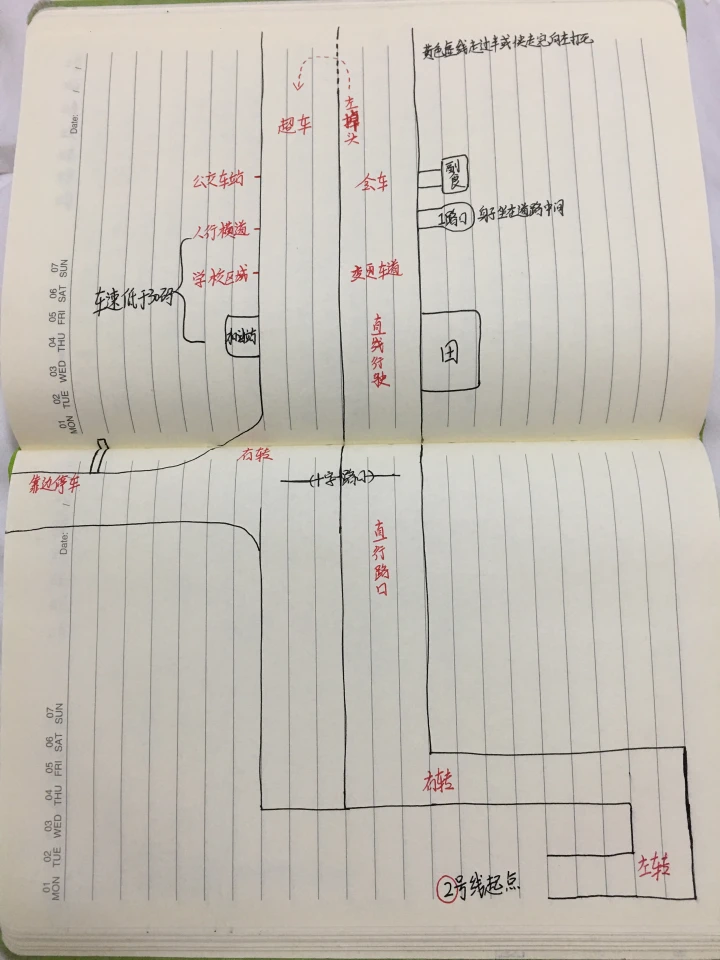 黄色虚线走过半或快走完向左打死
Date: / /
超车
左掉头
公交车站
会车
副食
人行横道
路口
身子坐在道路中间
学校区域
变更车道
车速低于30码
加油站
直线行驶
田
01 02 03 04 05 06 07
MON TUE WED THU FRI SAT SUN
右转
靠边停车
(十字路口)
Date: /
直行路口
右转
左转
②号线起点
01 02 03 04 05 06 07
MON TUE WED THU FRI SAT SUN